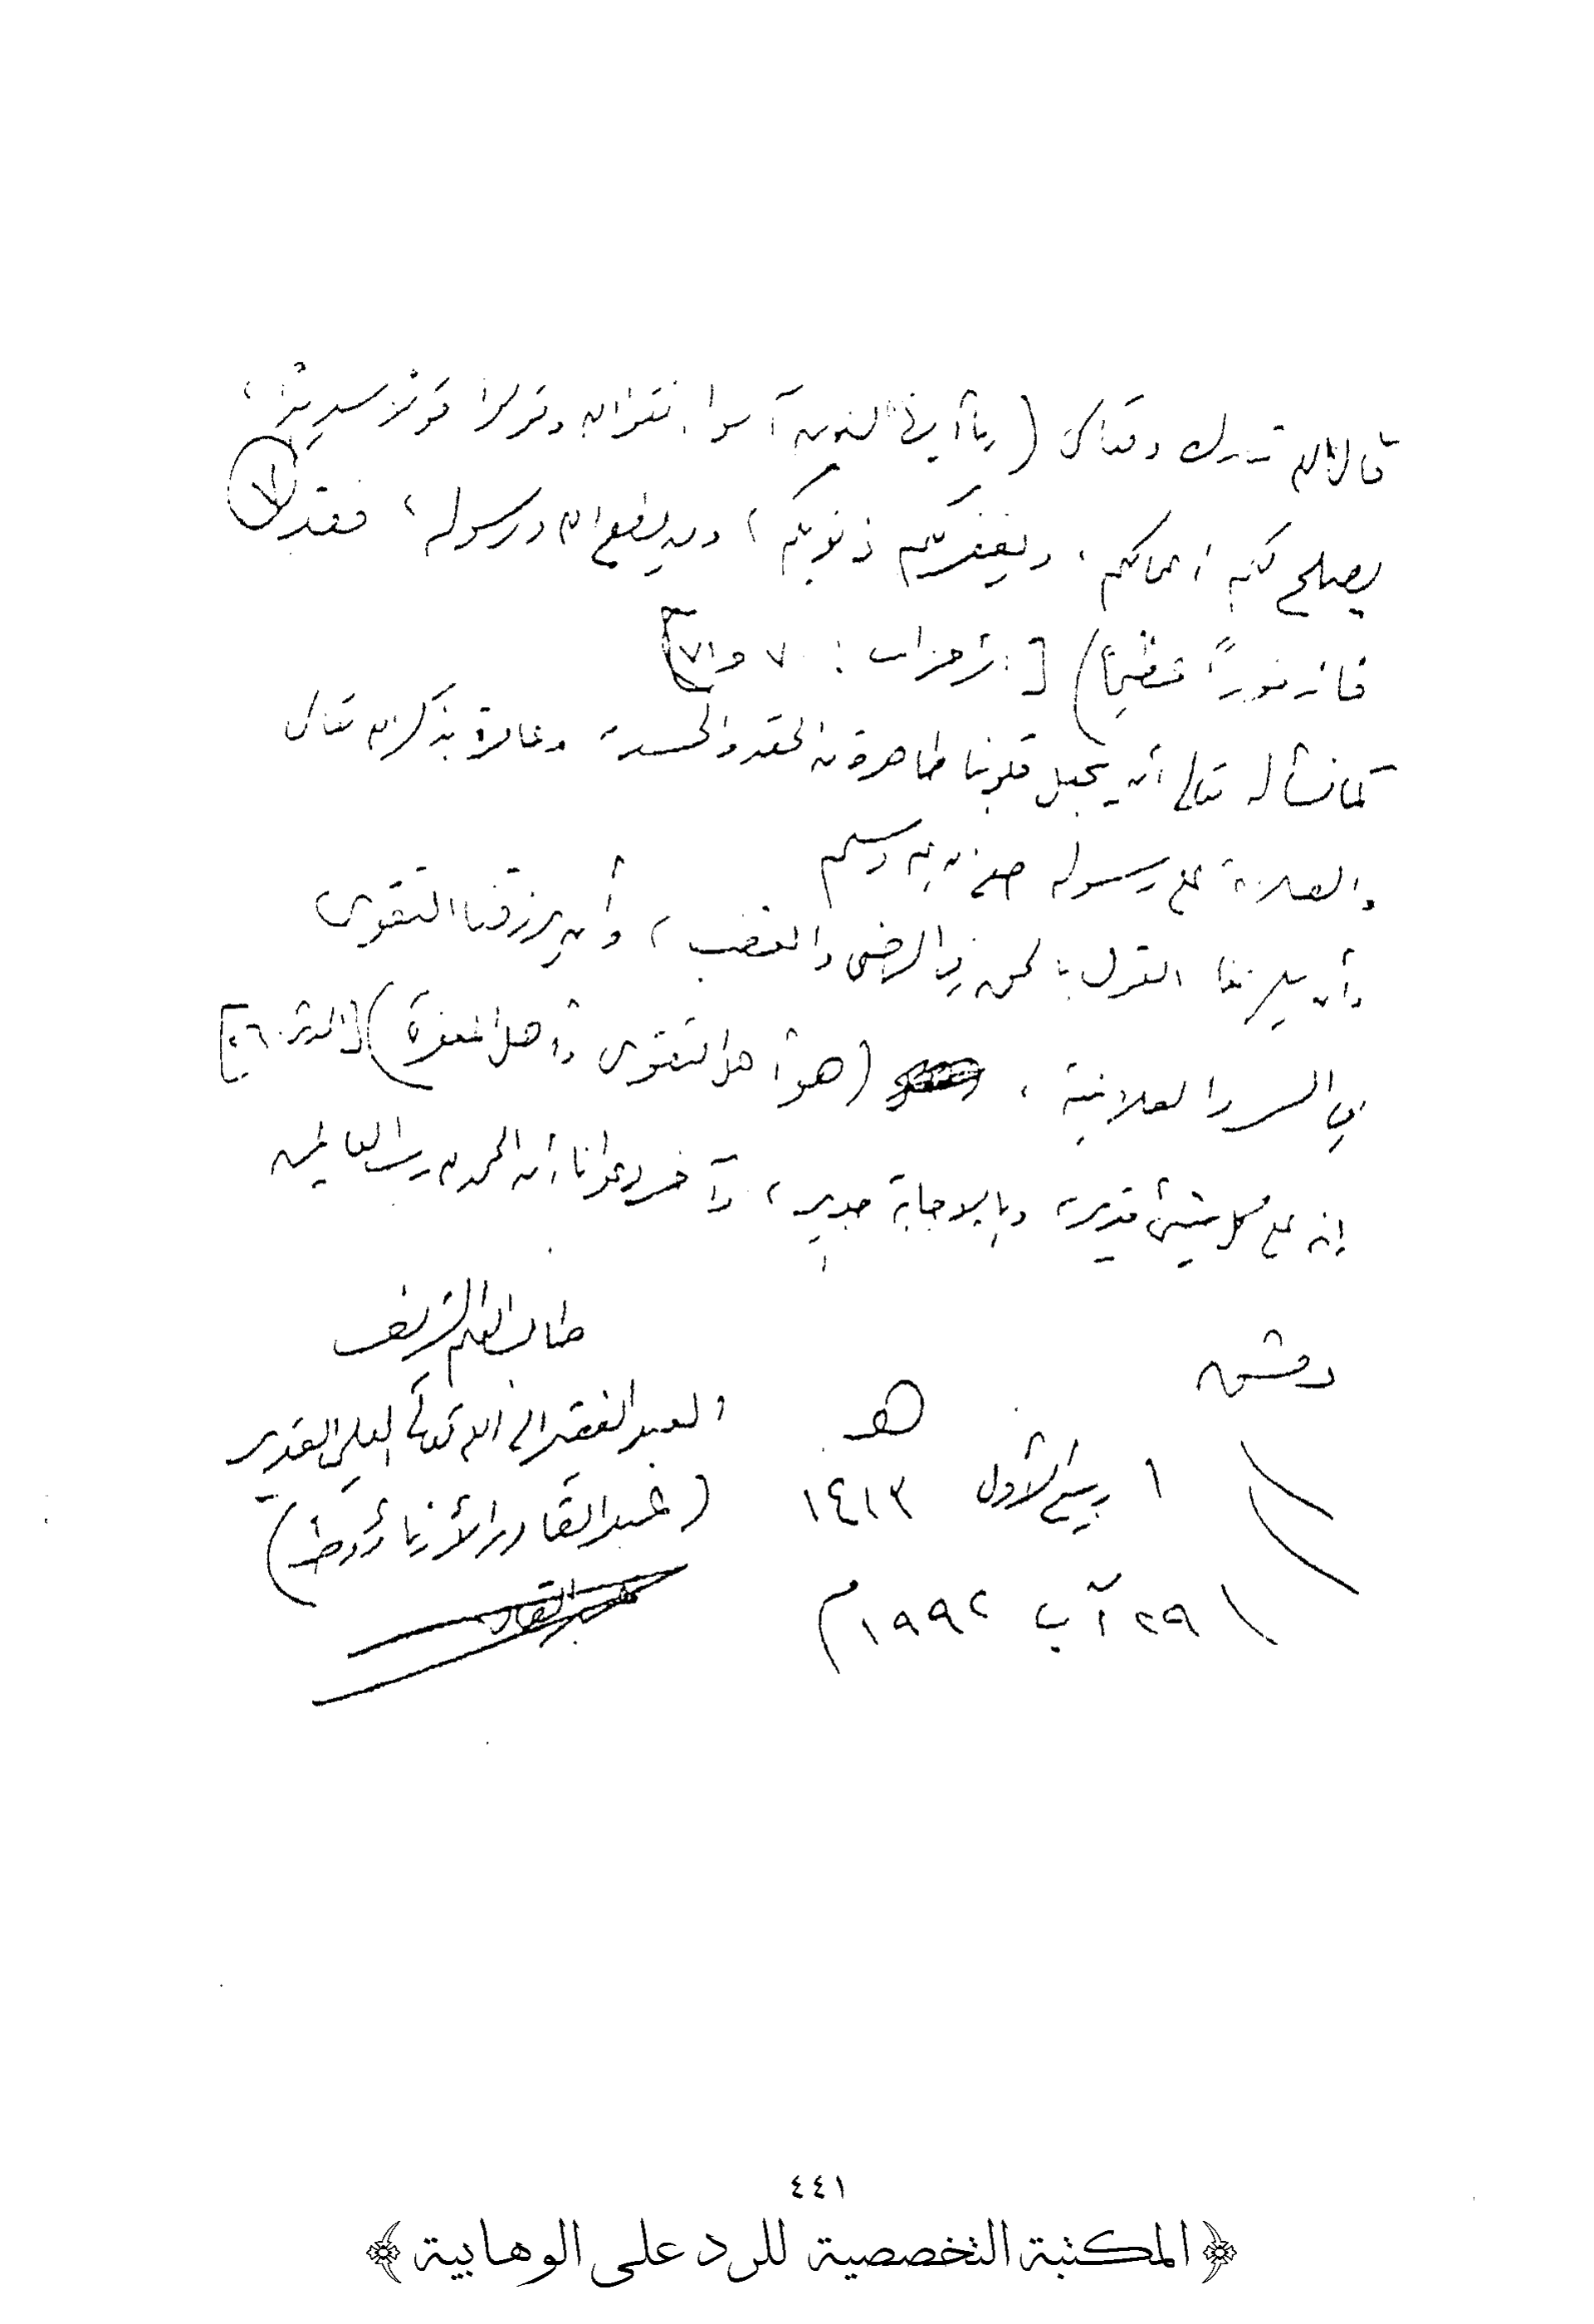 قال الله تبارك وتعالى (ياأيها الذين آمنوا اتقوا الله وقولوا قولاً سديداً،
يصلح لكم أعمالكم، ويغفر لكم ذنوبكم، ومن يطع الله ورسوله، فقد
فاز فوزاً عظيماً) [الأحزاب: ٧٠ و ٧١]
كما نسأله تعالى أن يجعل قلوبنا طاهرة من الحقد والحسد، وعامرة بذكر الله تعالى
والصلاة على رسوله صلى الله عليه وسلم
وأن يلهمنا القول بالحق في الرضى والغضب، وأن يرزقنا التقوى
في السر والعلانية، (هو أهل التقوى وأهل المغفرة) [المدثر: ٥٦]
إنه على كل شيء قدير، وبالإجابة جدير، وآخر دعوانا أن الحمد لله رب العالمين
طالب العلم الشريف
دمشق
العبد الفقير إلى الله تعالى العلي القدير
١ ربيع الأول ١٤١٣ هـ
(عبد القادر الأرناؤوط)
٢٩ آب ١٩٩٢ م
عبد القادر
٤٤١
﴿ المكتبة التخصصية للرد على الوهابية ﴾